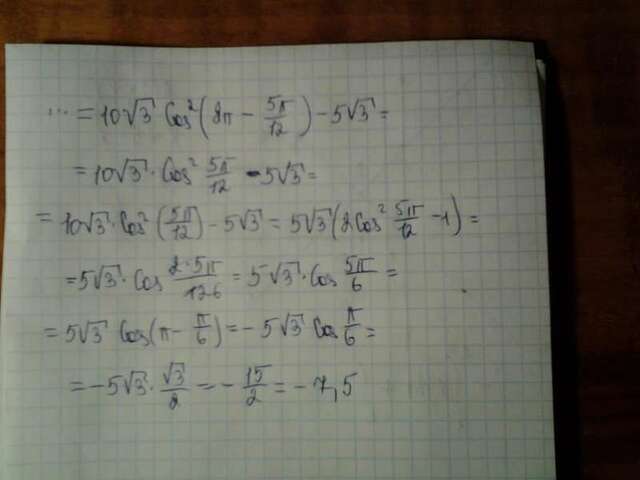 ... = 10√3 cos²(2π − 5π/12) − 5√3 =
= 10√3 · cos² 5π/12 − 5√3 =
= 10√3 · cos²(5π/12) − 5√3 = 5√3(2cos² 5π/12 − 1) =
= 5√3 · cos 2·5π/126 = 5√3 · cos 5π/6 =
= 5√3 cos(π − π/6) = − 5√3 cos π/6 =
= −5√3 · √3/2 = − 15/2 = − 7,5